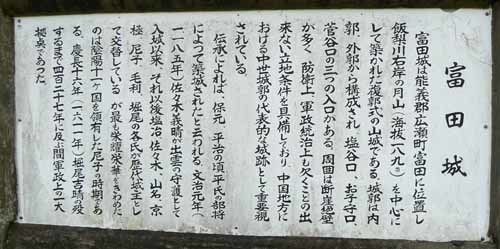 富田城
富田城は能義郡広瀬町富田に位置し
飯梨川右岸の月山(海抜一八九m)を中心に
して築かれた複郭式の山城である。城郭は内
郭、外郭から構成され、塩谷口、お子守口、
菅谷口の三つの入口がある。周囲は断崖絶壁
が多く、防衛上、軍政統治上も欠くことの出
来ない立地条件を具備しており、中国地方に
おける中世城郭の代表的な城跡として重要視
されている。
伝承によれば、保元、平治の頃平氏の部将
によって築城されたと云われる。文治元年(
一一八五年)佐々木義晴が出雲の守護として
入城以来、それ以後塩冶、佐々木、山名、京
極、尼子、毛利、堀尾の各氏が歴代城主とし
て交替している が最も栄耀栄華をきわめた
のは陰陽十一ヶ国を領有した尼子の時期であ
る。慶長十六年(一六一一年)堀尾吉晴の没
するまで四百二十七年に及ぶ間軍政上の一大
拠点であった。